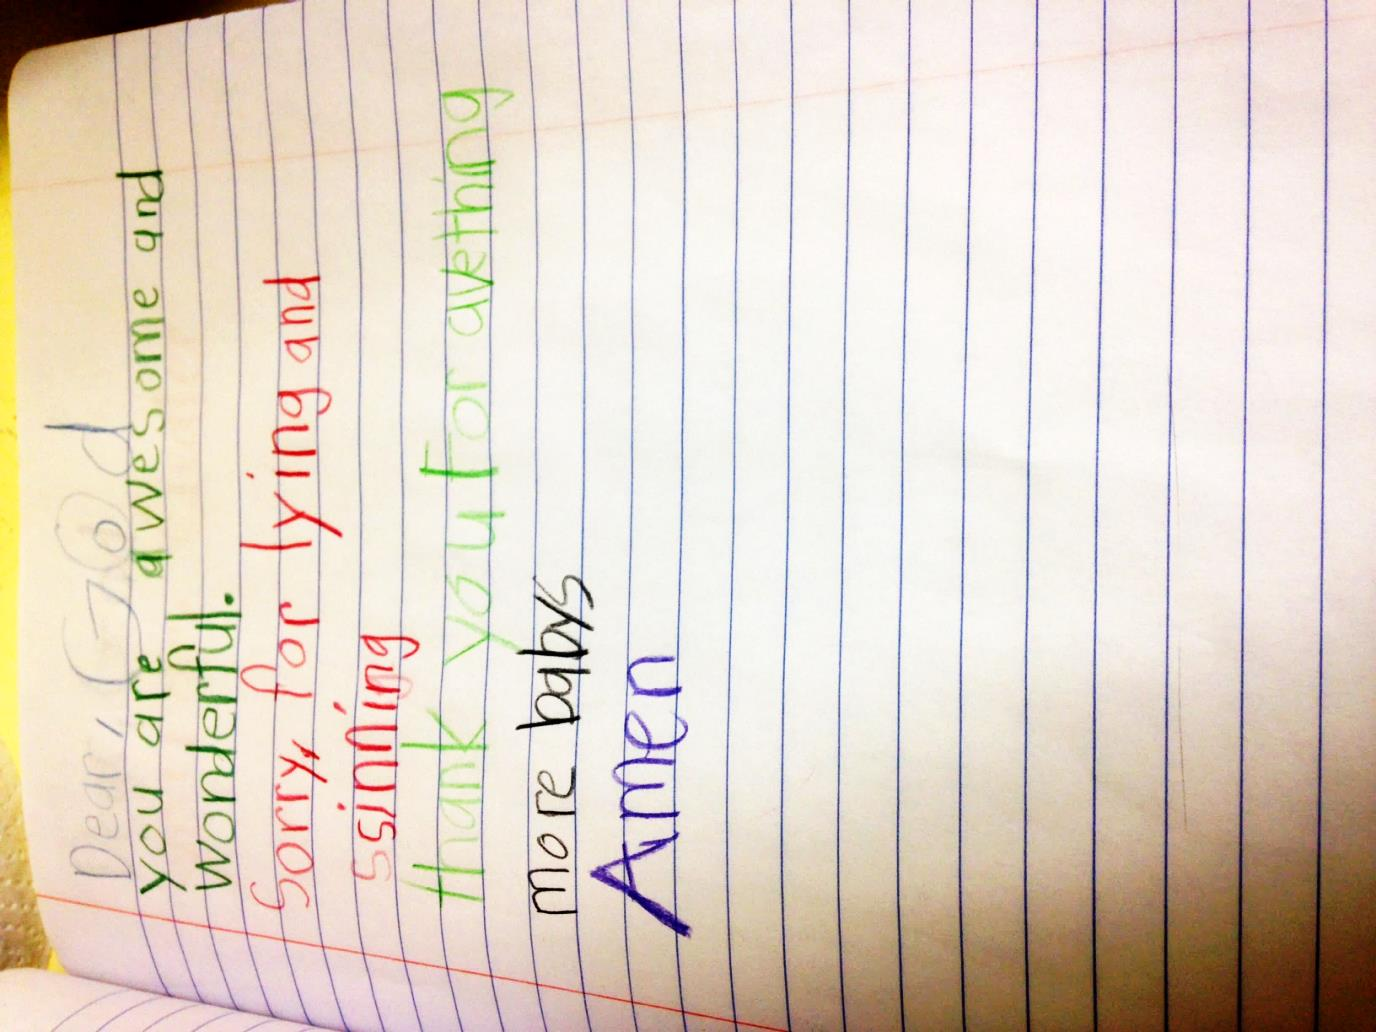 Dear, God
you are awesome and
wonderful.
Sorry, for lying and
ssinning
thank you for avething
more babys
Amen